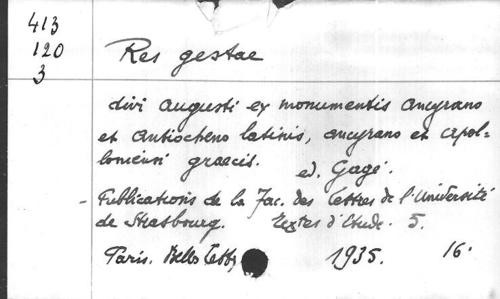 413
120
3
Res gestae
divi Augusti ex monumentis ancyrano
et antiocheno latinis, ancyrano et apol=
loniensi graecis. ed. Gagé.
- Publications de la Fac. des Lettres de l'Université
de Strasbourg. Textes d'Etude. 5.
Paris. Belles Lettr 1935. 16.